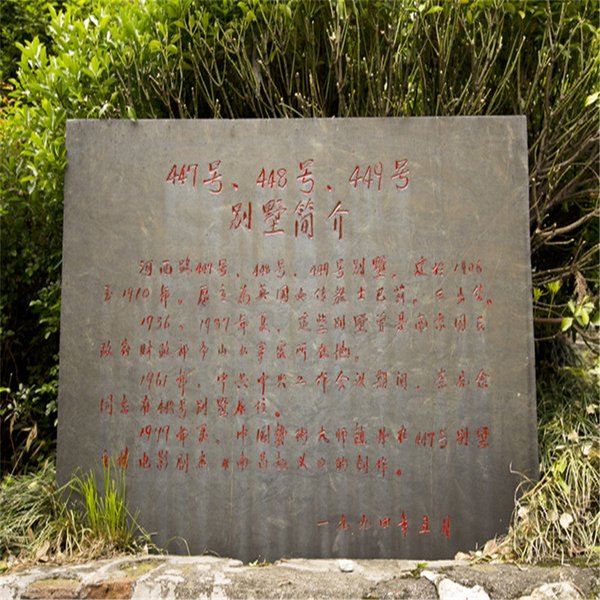 447号、448号、449号
别墅简介
河西路447号、448号、449号别墅，建于1906
至1910年，屋主为英国女传教士巴
1936、1937年夏，这些别墅曾是南京国民
政府财政部牯山办事处所在地。
1961年，中共中央工作会议期间，
同志在448号别墅居住。
1979年夏，中国艺术大师 在447号别墅
电影剧本《南昌起义》的创作。
一九九四年五月